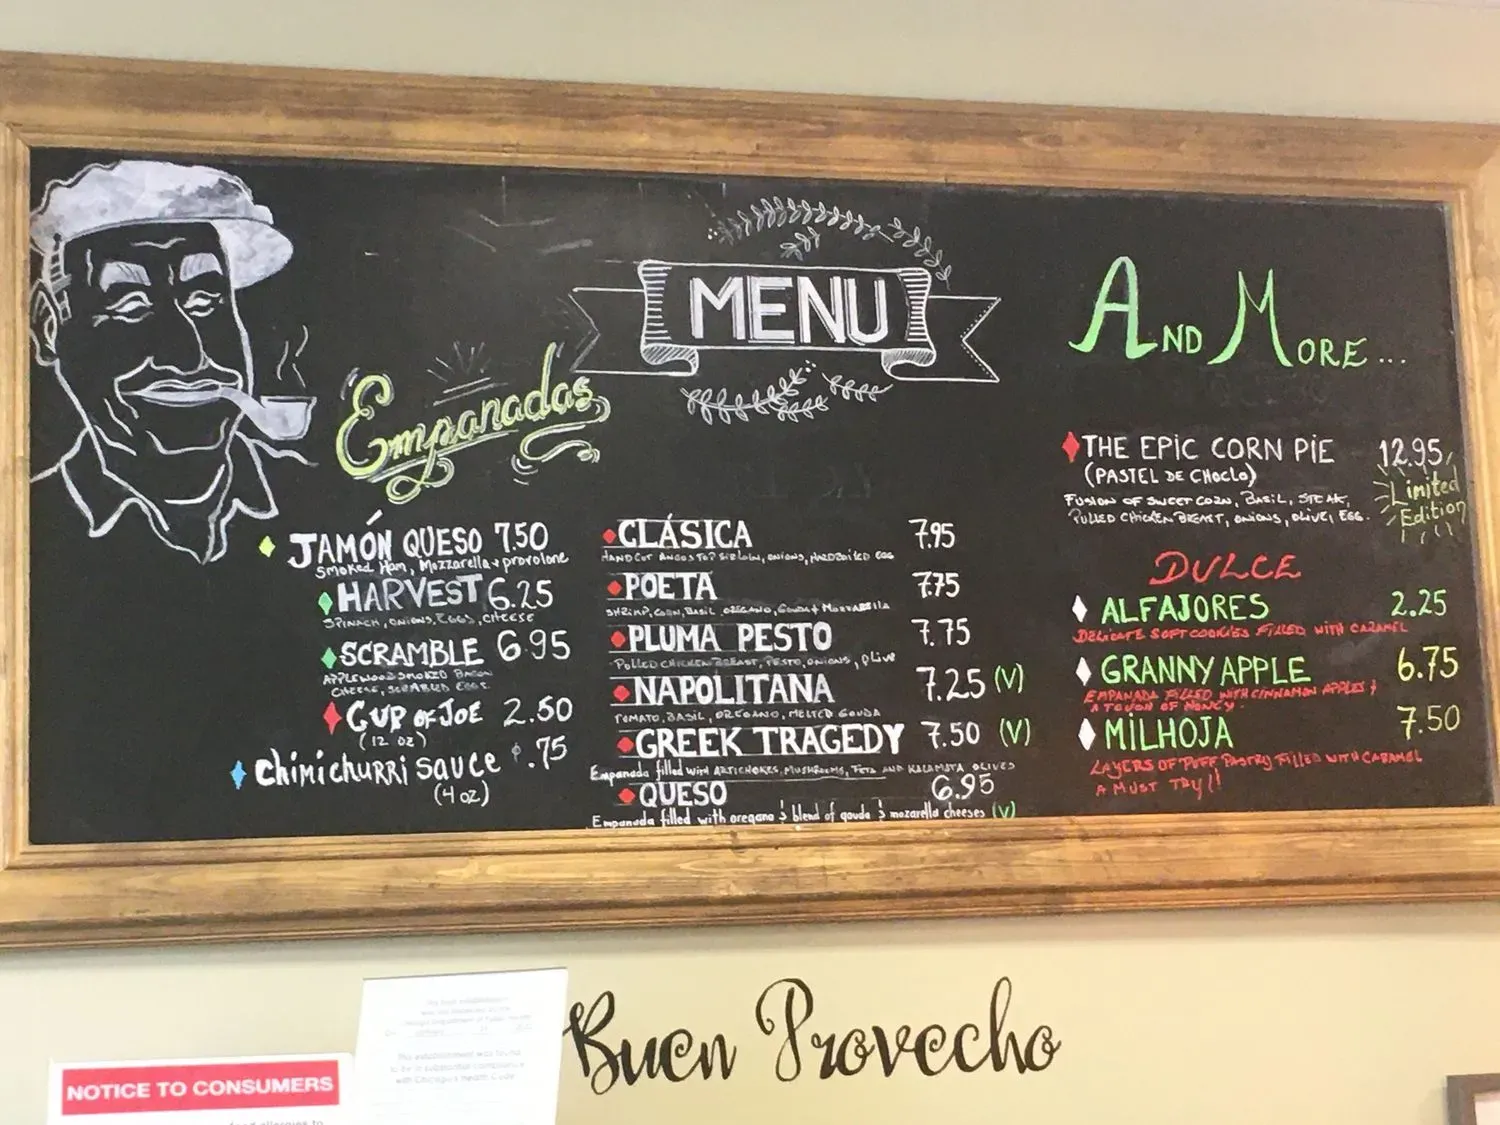 MENU
Empanadas
JAMÓN QUESO 7.50
Smoked Ham, Mozzarella + provolone
HARVEST 6.25
SPINACH, ONIONS, EGGS, CHEESE
SCRAMBLE 6.95
APPLEWOOD SMOKED BACON
CHEESE, SCRABLED EGGS
CUP OF JOE 2.50
(12 OZ)
Chimichurri Sauce .75
(4 oz)
CLÁSICA 7.95
HAND CUT ANGUS TOP SIRLOIN, ONIONS, HARDBOILED EGG
POETA 7.75
SHRIMP, CORN, BASIL, OREGANO, GOUDA + MOZZARELLA
PLUMA PESTO 7.75
PULLED CHICKEN BREAST, PESTO, ONIONS, OLIVE
NAPOLITANA 7.25 (V)
TOMATO, BASIL, OREGANO, MELTED GOUDA
GREEK TRAGEDY 7.50 (V)
Empanada filled with ARTICHOKES, MUSHROOMS, FETA AND KALAMATA OLIVES
QUESO 6.95
Empanada filled with oregano & blend of gouda & mozarella cheeses (V)
AND MORE...
THE EPIC CORN PIE 12.95
(PASTEL DE CHOCLO)
Limited
Edition
FUSION OF SWEET CORN, BASIL, STEAK,
PULLED CHICKEN BREAST, ONIONS, OLIVE, EGG.
DULCE
ALFAJORES 2.25
DELICATE SOFT COOKIES FILLED WITH CARAMEL
GRANNY APPLE 6.75
EMPANADA FILLED WITH CINNAMON APPLES &
A TOUCH OF HONEY.
MILHOJA 7.50
LAYERS OF PUFF PASTRY FILLED WITH CARAMEL
A MUST TRY!!
Buen Provecho
NOTICE TO CONSUMERS
This establishment was found
to be in substantial compliance
with Chicago's Health Code
food allergies to